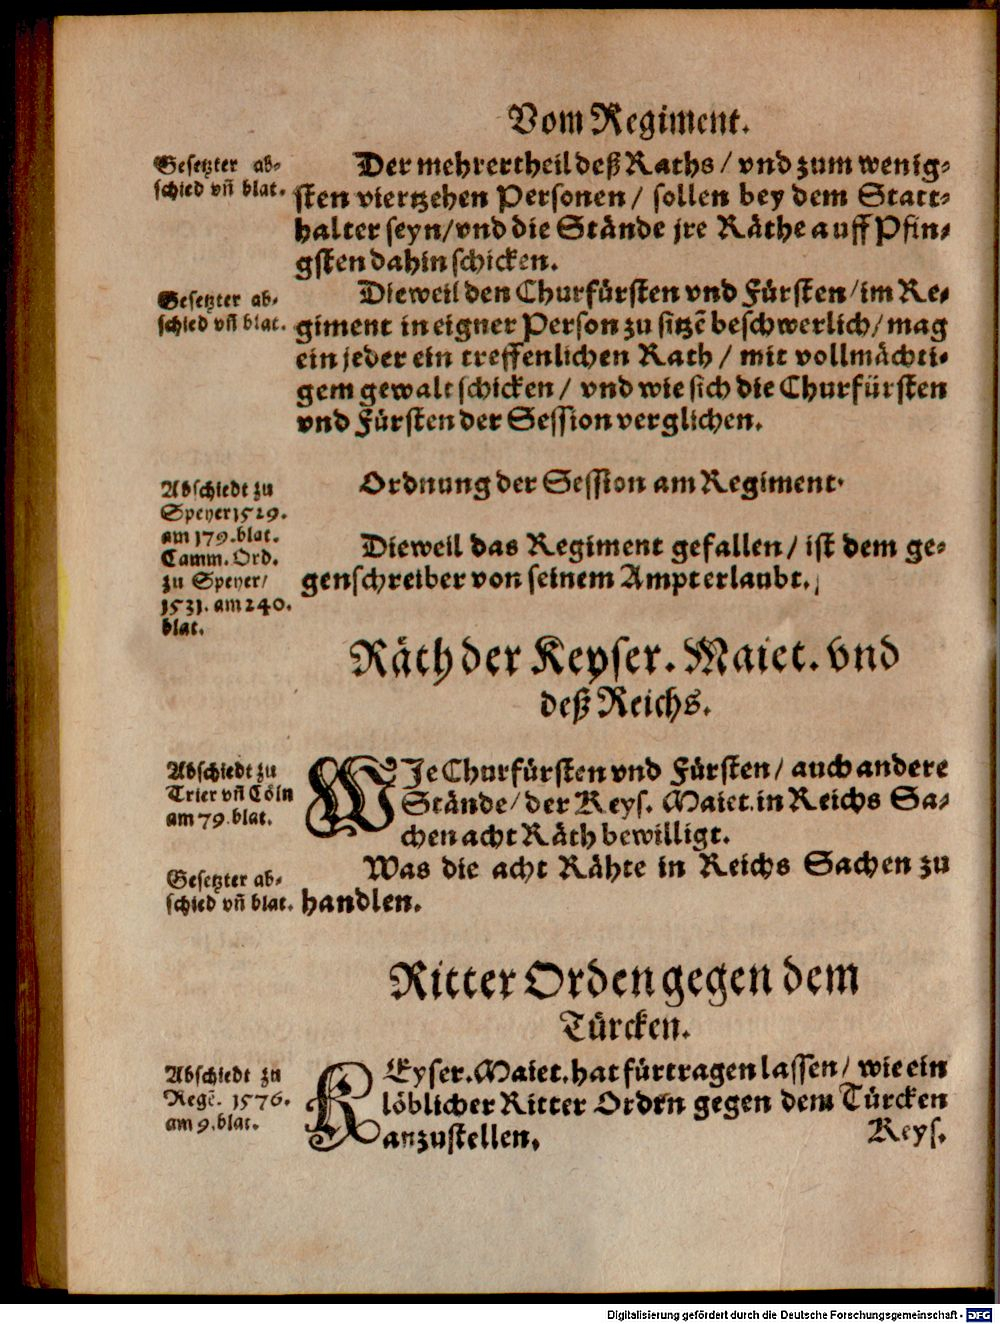 Vom Regiment.
Gesetzter ab-
schied vñ blat.
Der mehrertheil deß Raths / vnd zum wenig-
sten viertzehen Personen / sollen bey dem Statt-
halter seyn / vnd die Stände jre Räthe auff Pfin-
gsten dahin schicken.
Gesetzter ab-
schied vñ blat.
Dieweil den Churfürsten vnd Fürsten / im Re-
giment in eigner Person zu sitzē beschwerlich / mag
ein jeder ein treffenlichen Rath / mit vollmächti-
gem gewalt schicken / vnd wie sich die Churfürsten
vnd Fürsten der Session verglichen.
Ordnung der Session am Regiment.
Abschiedt zu
Speyer 1529.
am 179. blat.
Camm. Ord.
zu Speyer /
1531. am 240.
blat.
Dieweil das Regiment gefallen / ist dem ge-
genschreiber von seinem Ampt erlaubt.
Räth der Keyser. Maiet. vnd
deß Reichs.
Abschiedt zu
Trier vñ Cöln
am 79. blat.
WJe Churfürsten vnd Fürsten / auch andere
Stände / der Keys. Maiet. in Reichs Sa-
chen acht Räth bewilligt.
Gesetzter ab-
schied vñ blat.
Was die acht Rähte in Reichs Sachen zu
handlen.
Ritter Orden gegen dem
Türcken.
Abschiedt zu
Regē. 1576.
am 9. blat.
KEyser. Maiet. hat fürtragen lassen / wie ein
löblicher Ritter Orden gegen dem Türcken
anzustellen.
Keys.
Digitalisierung gefördert durch die Deutsche Forschungsgemeinschaft - DFG